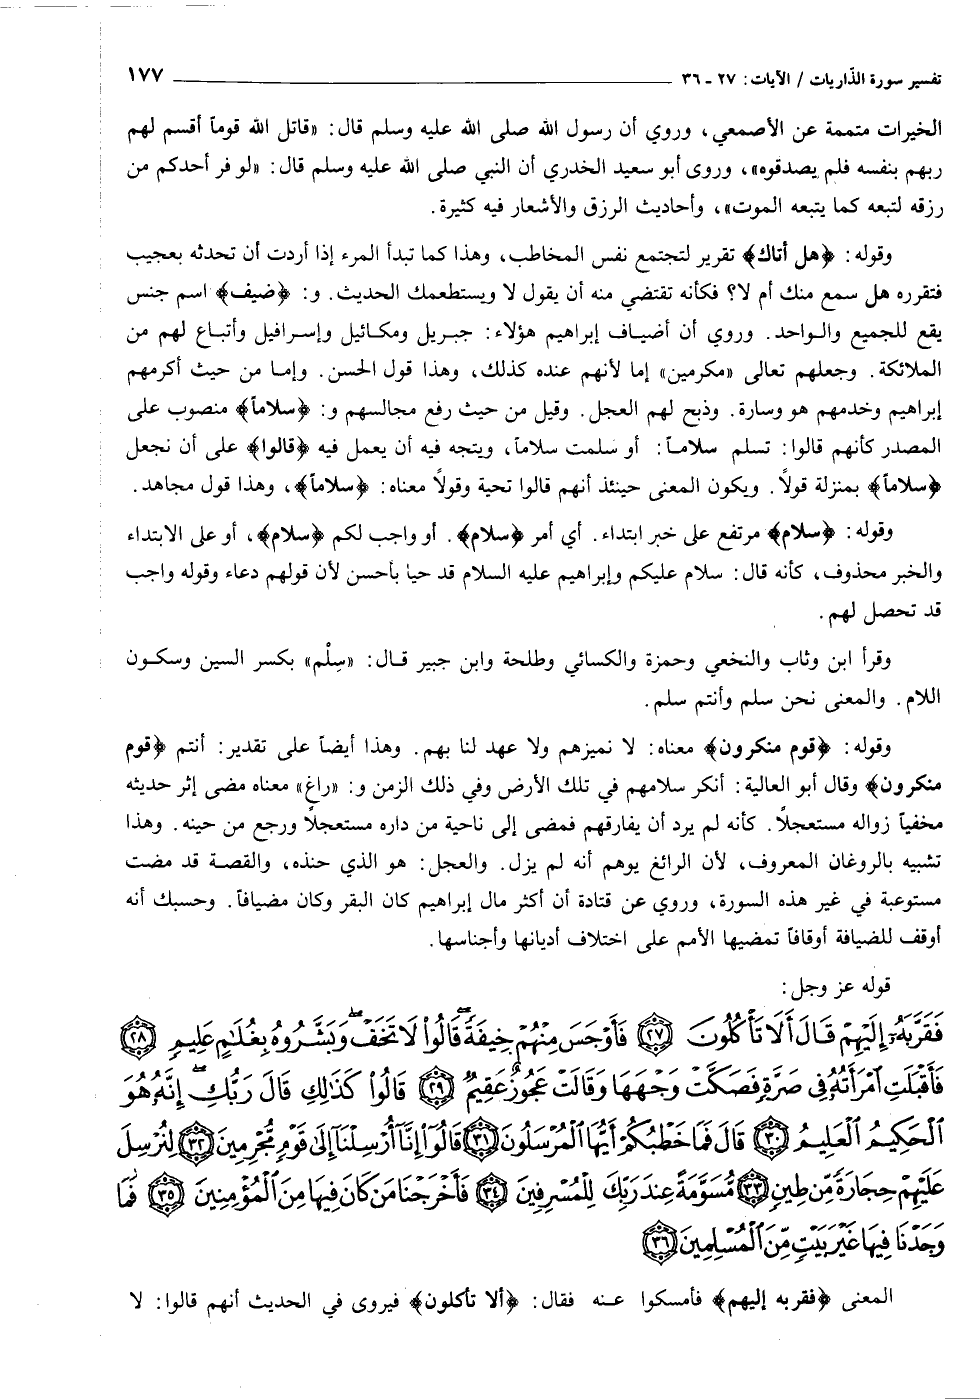 تفسير سورة الذاريات / الآيات: ٢٧ - ٣٦ ١٧٧
الخيرات متممة عن الأصمعي، وروي أن رسول الله صلى الله عليه وسلم قال: «قاتل الله قوماً أقسم لهم
ربهم بنفسه فلم يصدقوه»، وروى أبو سعيد الخدري أن النبي صلى الله عليه وسلم قال: «لو فر أحدكم من
رزقه لتبعه كما يتبعه الموت»، وأحاديث الرزق والأشعار فيه كثيرة.
وقوله: ﴿هل أتاك﴾ تقرير لتجتمع نفس المخاطب، وهذا كما تبدأ المرء إذا أردت أن تحدثه بعجيب
فتقرره هل سمع منك أم لا؟ فكأنه تقتضي منه أن يقول لا ويستطعمك الحديث. و: ﴿ضيف﴾ اسم جنس
يقع للجميع والواحد. وروي أن أضياف إبراهيم هؤلاء: جبريل ومكائيل وإسرافيل وأتباع لهم من
الملائكة. وجعلهم تعالى «مكرمين» إما لأنهم عنده كذلك، وهذا قول الحسن. وإما من حيث أكرمهم
إبراهيم وخدمهم هو وسارة. وذبح لهم العجل. وقيل من حيث رفع مجالسهم و: ﴿سلاماً﴾ منصوب على
المصدر كأنهم قالوا: تسلم سلاماً: أو سلمت سلاماً، ويتجه فيه أن يعمل فيه ﴿قالوا﴾ على أن نجعل
﴿سلاماً﴾ بمنزلة قولاً. ويكون المعنى حينئذ أنهم قالوا تحية وقولاً معناه: ﴿سلاماً﴾، وهذا قول مجاهد.
وقوله: ﴿سلام﴾ مرتفع على خبر ابتداء. أي أمر ﴿سلام﴾. أو واجب لكم ﴿سلام﴾، أو على الابتداء
والخبر محذوف، كأنه قال: سلام عليكم وإبراهيم عليه السلام قد حيا بأحسن لأن قولهم دعاء وقوله واجب
قد تحصل لهم.
وقرأ ابن وثاب والنخعي وحمزة والكسائي وطلحة وابن جبير قال: «سِلْم» بكسر السين وسكون
اللام. والمعنى نحن سلم وأنتم سلم.
وقوله: ﴿قوم منكرون﴾ معناه: لا نميزهم ولا عهد لنا بهم. وهذا أيضاً على تقدير: أنتم ﴿قوم
منكرون﴾ وقال أبو العالية: أنكر سلامهم في تلك الأرض وفي ذلك الزمن و: «راغ» معناه مضى إثر حديثه
مخفياً زواله مستعجلاً. كأنه لم يرد أن يفارقهم فمضى إلى ناحية من داره مستعجلاً ورجع من حينه. وهذا
تشبيه بالروغان المعروف، لأن الرائغ يوهم أنه لم يزل. والعجل: هو الذي حنذه، والقصة قد مضت
مستوعبة في غير هذه السورة، وروي عن قتادة أن أكثر مال إبراهيم كان البقر وكان مضيافاً. وحسبك أنه
أوقف للضيافة أوقافاً تمضيها الأمم على اختلاف أديانها وأجناسها.
قوله عز وجل:
فَقَرَّبَهُۥٓ إِلَيْهِمْ قَالَ أَلَا تَأْكُلُونَ ﴿٢٧﴾ فَأَوْجَسَ مِنْهُمْ خِيفَةً ۖ قَالُوا۟ لَا تَخَفْ ۖ وَبَشَّرُوهُ بِغُلَٰمٍ عَلِيمٍ ﴿٢٨﴾
فَأَقْبَلَتِ ٱمْرَأَتُهُۥ فِى صَرَّةٍ فَصَكَّتْ وَجْهَهَا وَقَالَتْ عَجُوزٌ عَقِيمٌ ﴿٢٩﴾ قَالُوا۟ كَذَٰلِكِ قَالَ رَبُّكِ ۖ إِنَّهُۥ هُوَ
ٱلْحَكِيمُ ٱلْعَلِيمُ ﴿٣٠﴾ قَالَ فَمَا خَطْبُكُمْ أَيُّهَا ٱلْمُرْسَلُونَ ﴿٣١﴾ قَالُوٓا۟ إِنَّآ أُرْسِلْنَآ إِلَىٰ قَوْمٍ مُّجْرِمِينَ ﴿٣٢﴾ لِنُرْسِلَ
عَلَيْهِمْ حِجَارَةً مِّن طِينٍ ﴿٣٣﴾ مُّسَوَّمَةً عِندَ رَبِّكَ لِلْمُسْرِفِينَ ﴿٣٤﴾ فَأَخْرَجْنَا مَن كَانَ فِيهَا مِنَ ٱلْمُؤْمِنِينَ ﴿٣٥﴾ فَمَا
وَجَدْنَا فِيهَا غَيْرَ بَيْتٍ مِّنَ ٱلْمُسْلِمِينَ ﴿٣٦﴾
المعنى ﴿فقربه إليهم﴾ فأمسكوا عنه فقال: ﴿ألا تأكلون﴾ فيروى في الحديث أنهم قالوا: لا